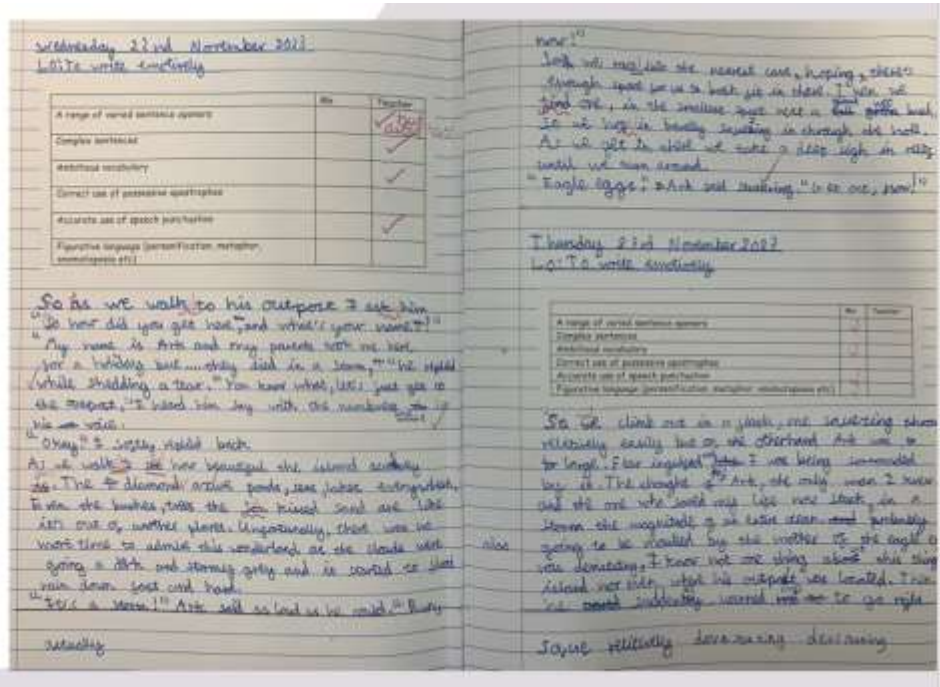 Wednesday 22nd November 2023
LO: To write emotively
Me Teacher
A range of varied sentence openers
Complex sentences
Ambitious vocabulary
Correct use of possessive apostrophes
Accurate use of speech punctuation
Figurative language (personification, metaphor,
onomatopoeia etc)
So as we walk to his outpost I ask him
"So how did you get here, and what's your name?"
"My name is Art and my parents took me here
for a holiday but.... they died in a storm," he replied
while shedding a tear. "You know what, let's just get to
the outpost," I heard him say with the numbness in
his voice.
"Okay" I replied back.
As we walk I see how beautiful the island actually
is. The diamond ponds, seas, lakes everywhere.
Even the bushes, trees the sea kissed sand are like
it's out of another planet. Unfortunately, there was no
more time to admire this wonderland as the clouds were
going a dark and stormy grey and it started to
rain down fast and hard.
"It's a storm!" Art said as loud as he could. "Hurry
actually
now!"
So we into the nearest cave, hoping, there's
enough space for us to both fit in there. Then we
find one, in the smallest space next a
So we in squeezing in through the hole.
As we get in there we take a deep sigh in relief
until we turn around.
"Eagle eggs!" Art said "Get out, now!"
Thursday 23rd November 2023
LO: To write emotively
Me Teacher
A range of varied sentence openers
Complex sentences
Ambitious vocabulary
Correct use of possessive apostrophes
Accurate use of speech punctuation
Figurative language (personification, metaphor, onomatopoeia etc)
So we climb out in a, me squeezing
relitively easily but on the otherhand Art was
to large. Fear ingulfed I was being surrounded
by it. The thought of Art, the only man I knew
and the one who saved my life now stuck in a
storm the magnitude of an entire and probably
also going to be by the mother of the eagle
was. I knew not one thing about this
island nor even what his outpost was located. Then
he suddenly warned to go right
So, we relitively